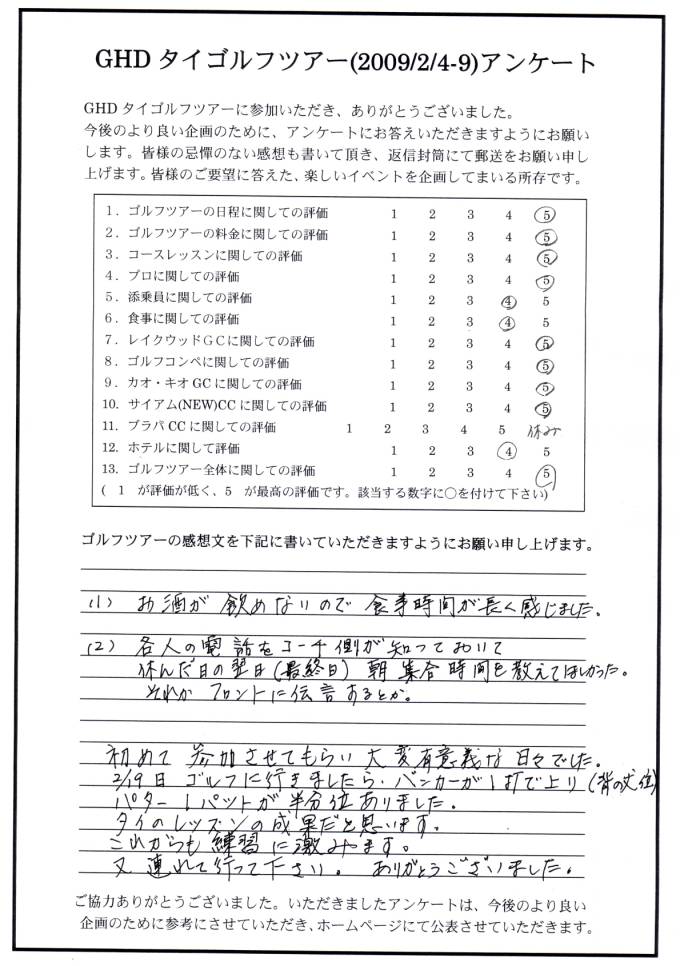 GHD タイゴルフツアー(2009/2/4-9)アンケート
GHD タイゴルフツアーに参加いただき、ありがとうございました。
今後のより良い企画のために、アンケートにお答えいただきますようにお願い
します。皆様の忌憚のない感想も書いて頂き、返信封筒にて郵送をお願い申し
上げます。皆様のご要望に答えた、楽しいイベントを企画してまいる所存です。
1．ゴルフツアーの日程に関しての評価 1 2 3 4 5
2．ゴルフツアーの料金に関しての評価 1 2 3 4 5
3．コースレッスンに関しての評価 1 2 3 4 5
4．プロに関しての評価 1 2 3 4 5
5．添乗員に関しての評価 1 2 3 4 5
6．食事に関しての評価 1 2 3 4 5
7．レイクウッドＧＣに関しての評価 1 2 3 4 5
8．ゴルフコンペに関しての評価 1 2 3 4 5
9．カオ・キオ GC に関しての評価 1 2 3 4 5
10．サイアム(NEW)CC に関しての評価 1 2 3 4 5
11．ブラパ CC に関しての評価 1 2 3 4 5 休み
12．ホテルに関して評価 1 2 3 4 5
13．ゴルフツアー全体に関しての評価 1 2 3 4 5
( 1 が評価が低く、5 が最高の評価です。該当する数字に○を付けて下さい)
ゴルフツアーの感想文を下記に書いていただきますようにお願い申し上げます。
(1) お酒が飲めないので食事時間が長く感じました。
(2) 各人の電話をコーチ側が知っておいて
休んだ日の翌日(最終日) 朝集合時間を教えてほしかった。
それかフロントに伝言するとか。
初めて参加させてもらい大変有意義な日々でした。
2/19日 ゴルフに行きましたら、バンカーが1打で上り(背の丈位)
パター1パットが半分位ありました。
タイのレッスンの成果だと思います。
これからも練習に激みます。
又連れて行って下さい。ありがとうございました。
ご協力ありがとうございました。いただきましたアンケートは、今後のより良い
企画のために参考にさせていただき、ホームページにて公表させていただきます。